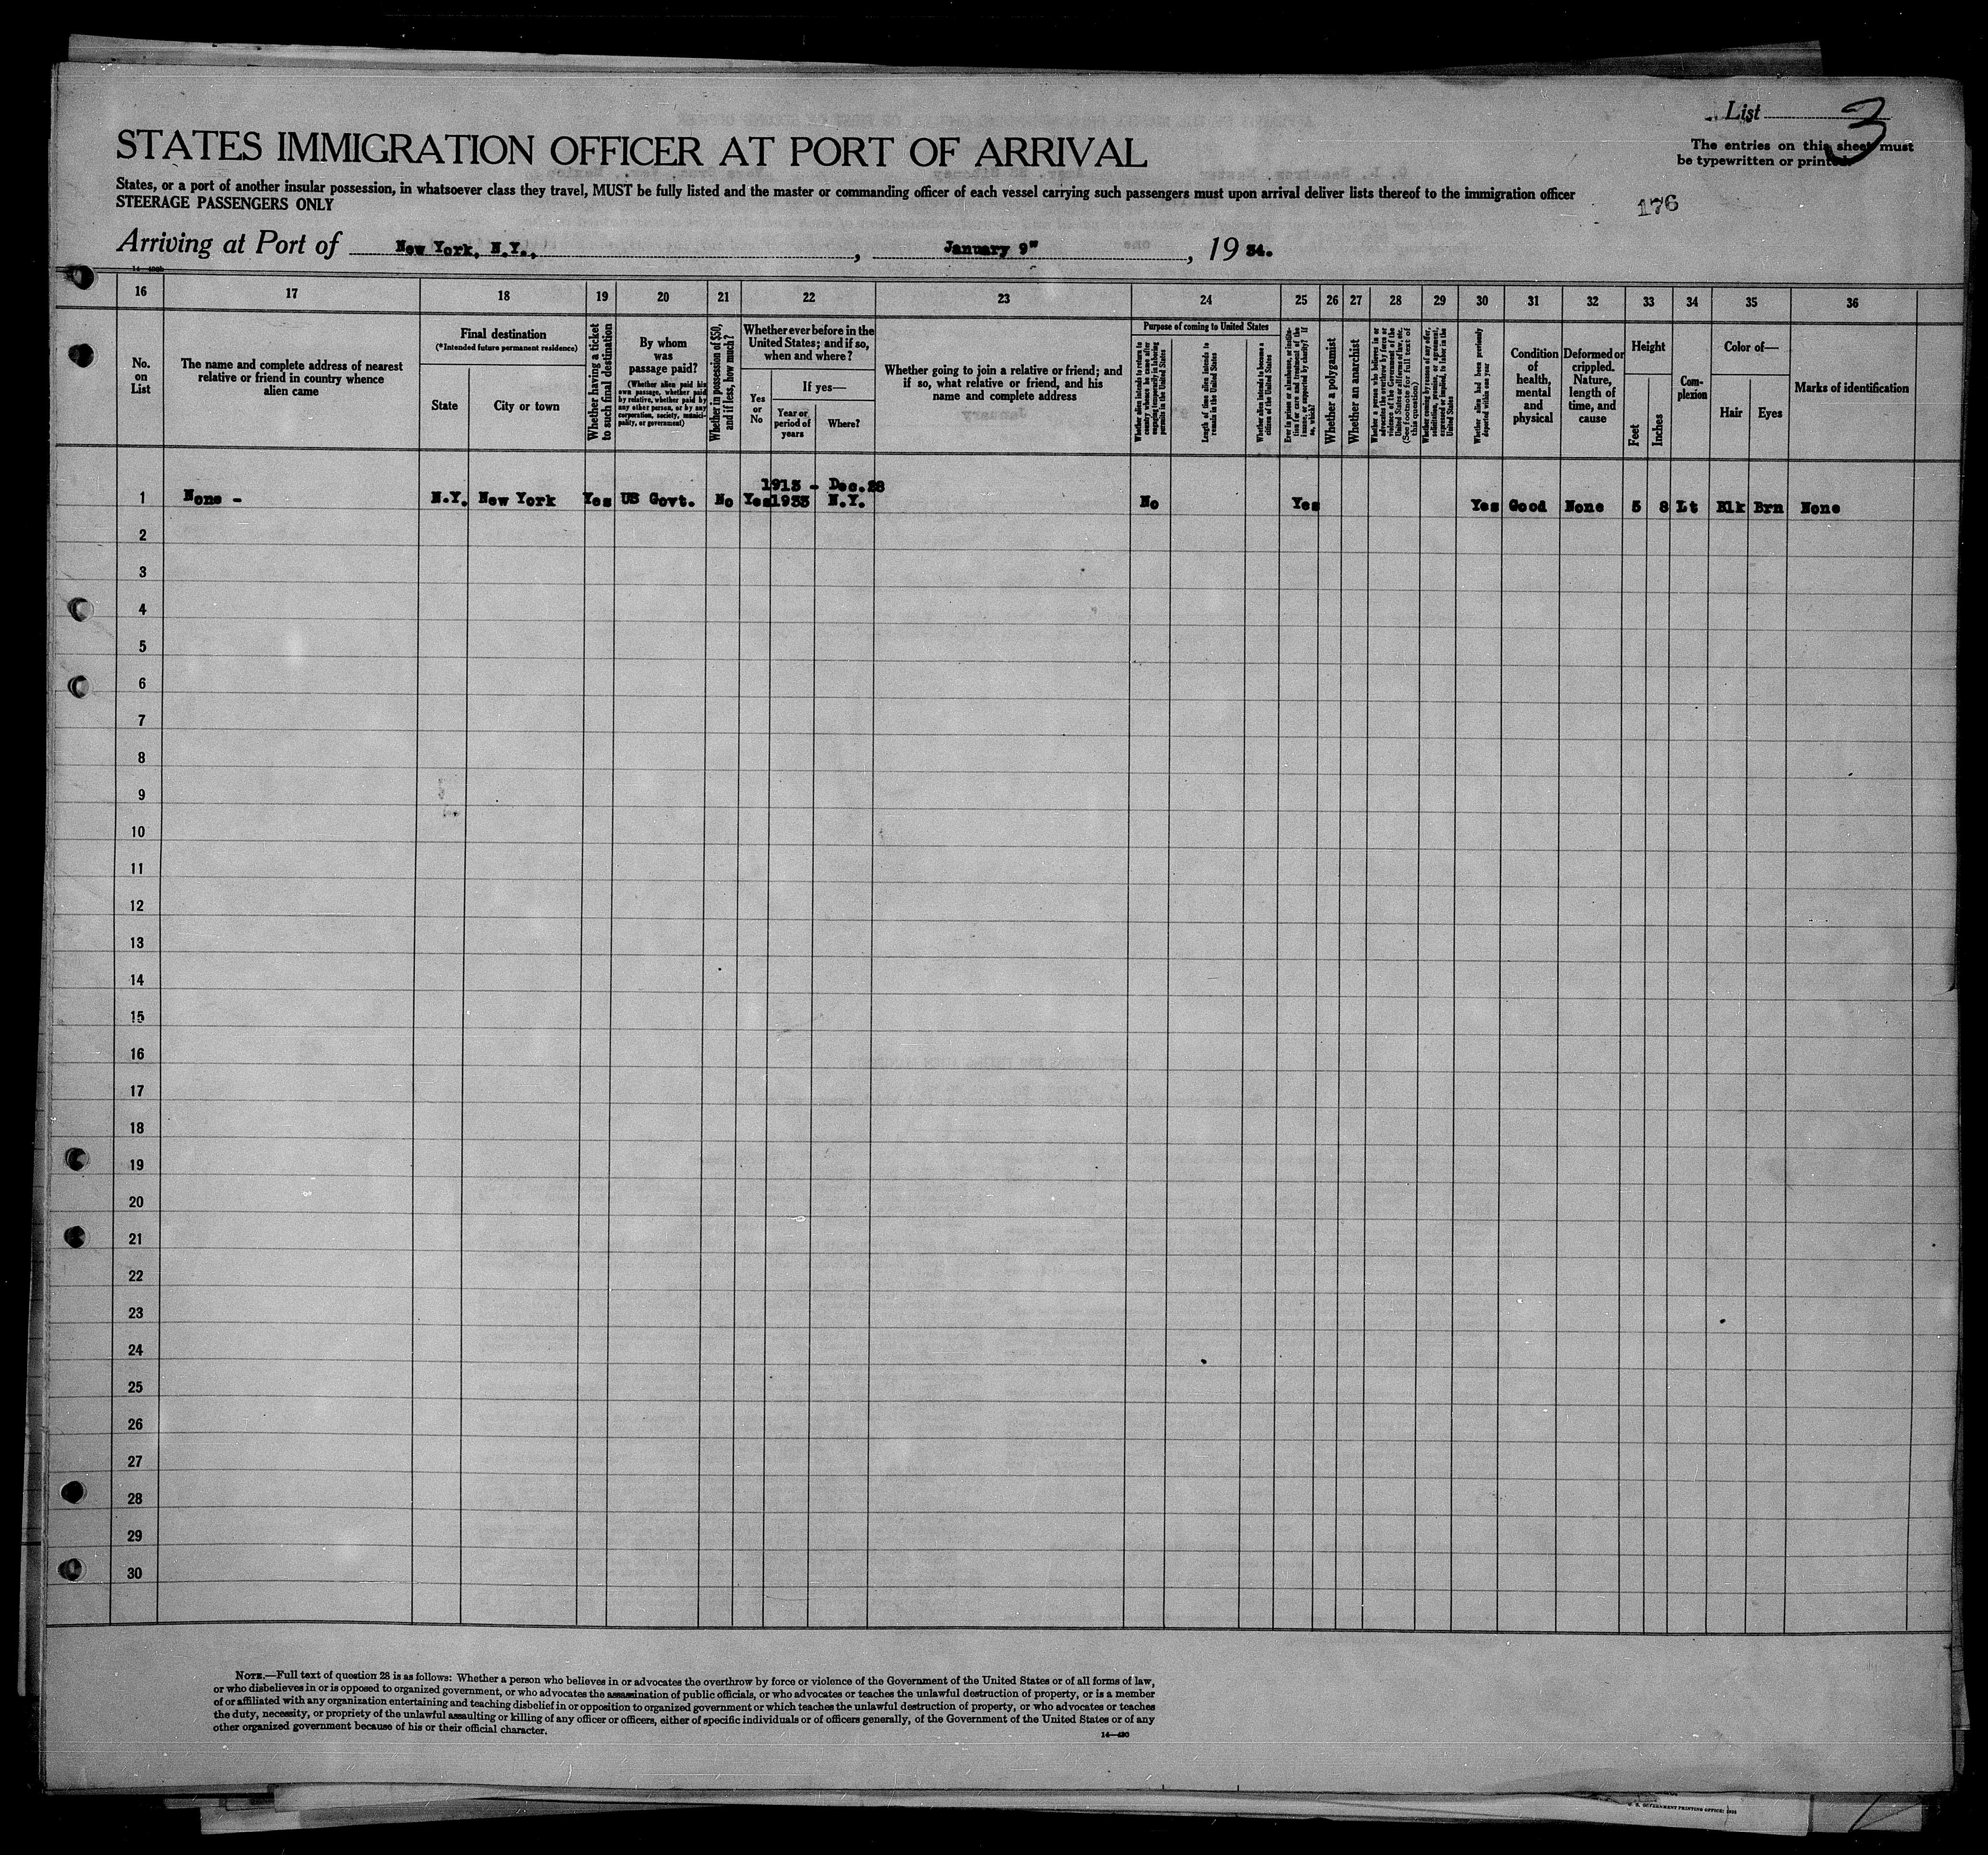 List 3
The entries on this sheet must
be typewritten or printed.
STATES IMMIGRATION OFFICER AT PORT OF ARRIVAL
States, or a port of another insular possession, in whatsoever class they travel, MUST be fully listed and the master or commanding officer of each vessel carrying such passengers must upon arrival deliver lists thereof to the immigration officer
STEERAGE PASSENGERS ONLY
176
Arriving at Port of New York, N.Y., , January 9" , 19 34.
16 17 18 19 20 21 22 23 24 25 26 27 28 29 30 31 32 33 34 35 36
No.
on
List
The name and complete address of nearest
relative or friend in country whence
alien came
Final destination
(*Intended future permanent residence)
State
City or town
Whether having a ticket
to such final destination
By whom
was
passage paid?
(Whether alien paid his
own passage, whether paid
by relative, whether paid by
any other person, or by any
corporation, society, munici-
pality, or government)
Whether in possession of $50,
and if less, how much?
Whether ever before in the
United States; and if so,
when and where?
Yes
or
No
If yes—
Year or
period of
years
Where?
Whether going to join a relative or friend; and
if so, what relative or friend, and his
name and complete address
Purpose of coming to United States
Whether alien intends to return to
country whence he came after
engaging temporarily in laboring
pursuits in the United States
Length of time alien intends to
remain in the United States
Whether alien intends to become a
citizen of the United States
Ever in prison or almshouse, or institu-
tion for care and treatment of the
insane, or supported by charity? If
so, which?
Whether a polygamist
Whether an anarchist
Whether a person who believes in or
advocates the overthrow by force or
violence of the Government of the
United States or all forms of law, etc.
(See footnote for full text of
this question)
Whether coming by reason of any offer,
solicitation, promise, or agreement,
expressed or implied, to labor in the
United States
Whether alien had been previously
deported within one year
Condition
of
health,
mental
and
physical
Deformed or
crippled.
Nature,
length of
time, and
cause
Height
Feet
Inches
Com-
plexion
Color of—
Hair
Eyes
Marks of identification
1913 - Dec.28
1 None - N.Y. New York Yes US Govt. No Yes 1933 N.Y. No Yes Yes Good None 5 8 Lt Blk Brn None
2
3
4
5
6
7
8
9
10
11
12
13
14
15
16
17
18
19
20
21
22
23
24
25
26
27
28
29
30
NOTE.—Full text of question 28 is as follows: Whether a person who believes in or advocates the overthrow by force or violence of the Government of the United States or of all forms of law,
or who disbelieves in or is opposed to organized government, or who advocates the assassination of public officials, or who advocates or teaches the unlawful destruction of property, or is a member
of or affiliated with any organization entertaining and teaching disbelief in or opposition to organized government or which teaches the unlawful destruction of property, or who advocates or teaches
the duty, necessity, or propriety of the unlawful assaulting or killing of any officer or officers, either of specific individuals or of officers generally, of the Government of the United States or of any
other organized government because of his or their official character.
14—430
U. S. GOVERNMENT PRINTING OFFICE: